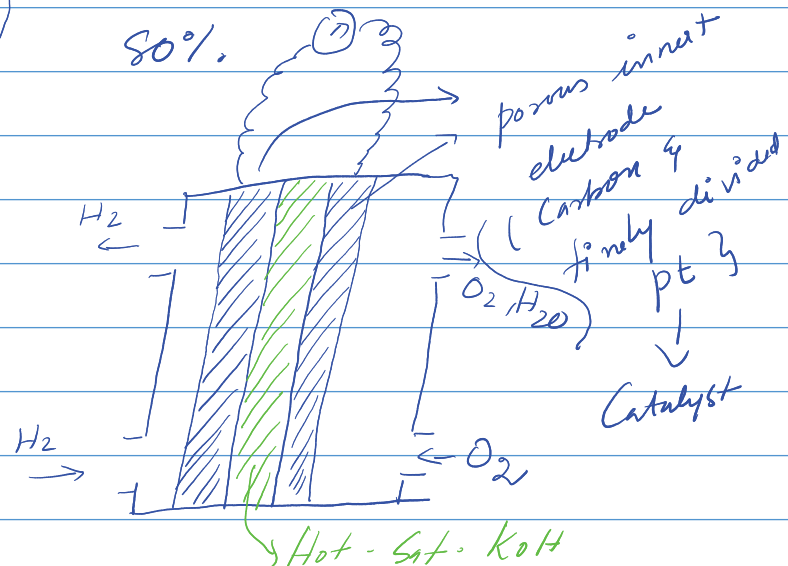 80%.
porous innert
electrode
( Carbon &
finely divided
pt }
Catalyst
H2
O2, H20
H2
O2
Hot - Sat - KOH